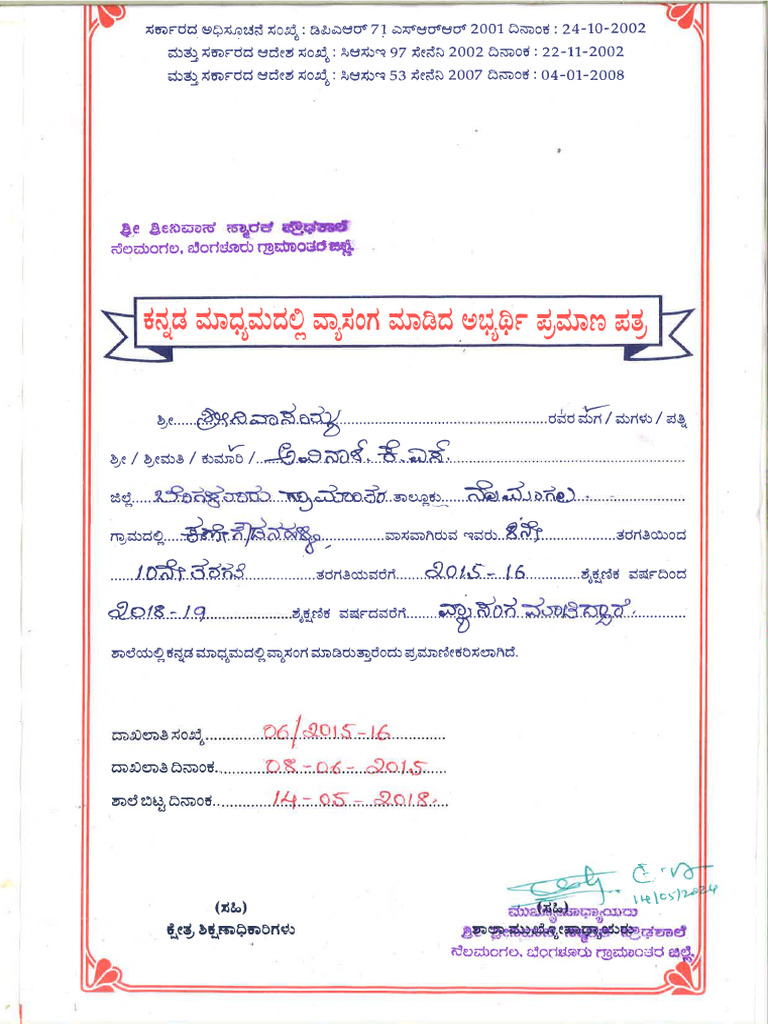 ಸರ್ಕಾರದ ಅಧಿಸೂಚನೆ ಸಂಖ್ಯೆ : ಡಿಪಿಎಆರ್ 71 ಎಸ್‌ಆರ್‌ಆರ್ 2001 ದಿನಾಂಕ : 24-10-2002
ಮತ್ತು ಸರ್ಕಾರದ ಆದೇಶ ಸಂಖ್ಯೆ : ಸಿಆಸುಇ 97 ಸೇನೆನಿ 2002 ದಿನಾಂಕ : 22-11-2002
ಮತ್ತು ಸರ್ಕಾರದ ಆದೇಶ ಸಂಖ್ಯೆ : ಸಿಆಸುಇ 53 ಸೇನೆನಿ 2007 ದಿನಾಂಕ : 04-01-2008
ಶ್ರೀ ಶ್ರೀನಿವಾಸ ಸ್ಮಾರಕ ಪ್ರೌಢಶಾಲೆ
ನೆಲಮಂಗಲ, ಬೆಂಗಳೂರು ಗ್ರಾಮಾಂತರ ಜಿಲ್ಲೆ.
ಕನ್ನಡ ಮಾಧ್ಯಮದಲ್ಲಿ ವ್ಯಾಸಂಗ ಮಾಡಿದ ಅಭ್ಯರ್ಥಿ ಪ್ರಮಾಣ ಪತ್ರ
ಶ್ರೀ. ಶ್ರೀನಿವಾಸಯ್ಯ ರವರ ಮಗ / ಮಗಳು / ಪತ್ನಿ
ಶ್ರೀ / ಶ್ರೀಮತಿ / ಕುಮಾರಿ / ಅವಿನಾಶ್. ಕೆ.ಎಸ್.
ಜಿಲ್ಲೆ. ಬೆಂಗಳೂರು ಗ್ರಾಮಾಂತರ ತಾಲ್ಲೂಕು ನೆಲಮಂಗಲ
ಗ್ರಾಮದಲ್ಲಿ. ವಾಸವಾಗಿರುವ ಇವರು 8ನೇ ತರಗತಿಯಿಂದ
10ನೇ ತರಗತಿ ತರಗತಿಯವರೆಗೆ 2015-16 ಶೈಕ್ಷಣಿಕ ವರ್ಷದಿಂದ
2018-19 ಶೈಕ್ಷಣಿಕ ವರ್ಷದವರೆಗೆ ವ್ಯಾಸಂಗ ಮಾಡಿದ್ದಾರೆ.
ಶಾಲೆಯಲ್ಲಿ ಕನ್ನಡ ಮಾಧ್ಯಮದಲ್ಲಿ ವ್ಯಾಸಂಗ ಮಾಡಿರುತ್ತಾರೆಂದು ಪ್ರಮಾಣೀಕರಿಸಲಾಗಿದೆ.
ದಾಖಲಾತಿ ಸಂಖ್ಯೆ 06/2015-16
ದಾಖಲಾತಿ ದಿನಾಂಕ. 08-06-2015
ಶಾಲೆ ಬಿಟ್ಟ ದಿನಾಂಕ. 14-05-2018.
14/05/2024
(ಸಹಿ) (ಸಹಿ)
ಮುಖ್ಯೋಪಾಧ್ಯಾಯರು
ಕ್ಷೇತ್ರ ಶಿಕ್ಷಣಾಧಿಕಾರಿಗಳು ಶಾಲಾ ಮುಖ್ಯೋಪಾಧ್ಯಾಯರು
ಶ್ರೀ ಶ್ರೀನಿವಾಸ ಸ್ಮಾರಕ ಪ್ರೌಢಶಾಲೆ
ನೆಲಮಂಗಲ, ಬೆಂಗಳೂರು ಗ್ರಾಮಾಂತರ ಜಿಲ್ಲೆ.